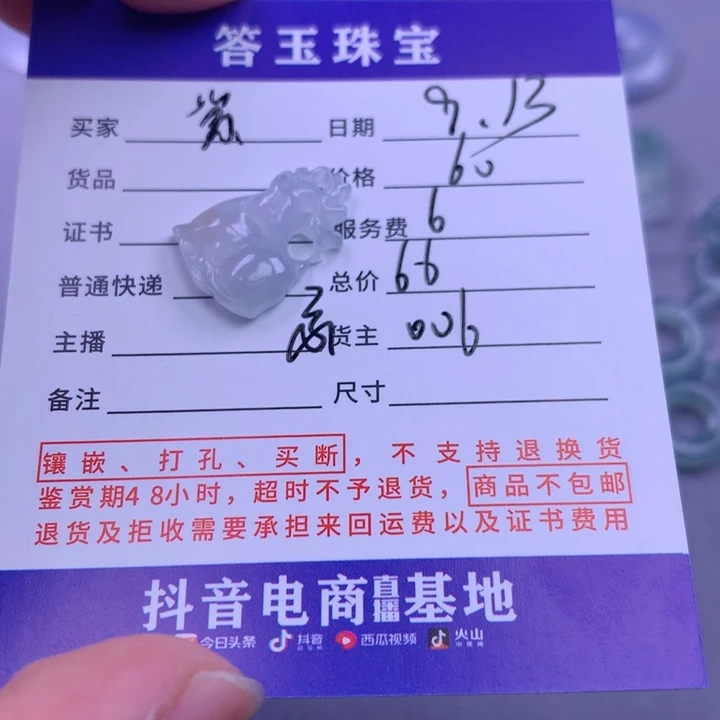 答玉珠宝
买家 日期 9.13
货品 价格 60
证书 服务费 6
普通快递 总价 66
主播 货主 006
备注 尺寸
镶嵌、打孔、买断，不支持退换货
鉴赏期48小时，超时不予退货，商品不包邮
退货及拒收需要承担来回运费以及证书费用
抖音电商直播基地
今日头条 抖音 西瓜视频 火山